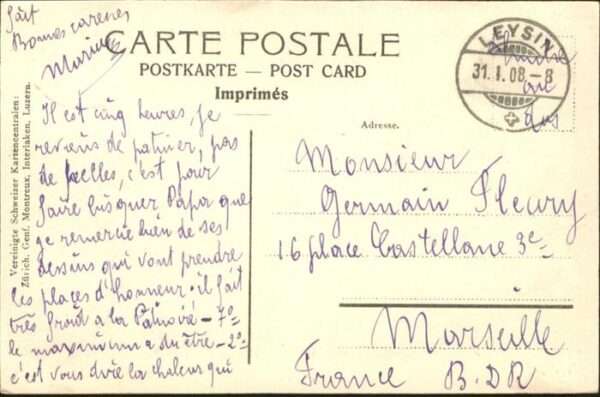 fait
Bonnes caresses
Marius
CARTE POSTALE
POSTKARTE — POST CARD
Imprimés
LEYSIN
31. I. 08 - 8
au
dos
Adresse.
Vereinigte Schweizer Kartencentralen:
Zürich, Genf, Montreux, Interlaken, Luzern.
Il est cinq heures, je
reviens de patiner, pas
de pelles, c'est pour
faire bisquer Papa que
je remercie bien de ses
dessins qui vont prendre
les places d'honneur. il fait
très froid a la Patinoire - 7°
le maximum a du être - 2°
c'est vous dire la chaleur qui
Monsieur
Germain Fleury
16 place Castellane 3e
Marseille
France B.D.R